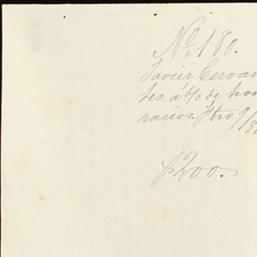 No. 180.
Javier Cervan
tes. a/c de hono
rarios. Fbro 9/88
$200.